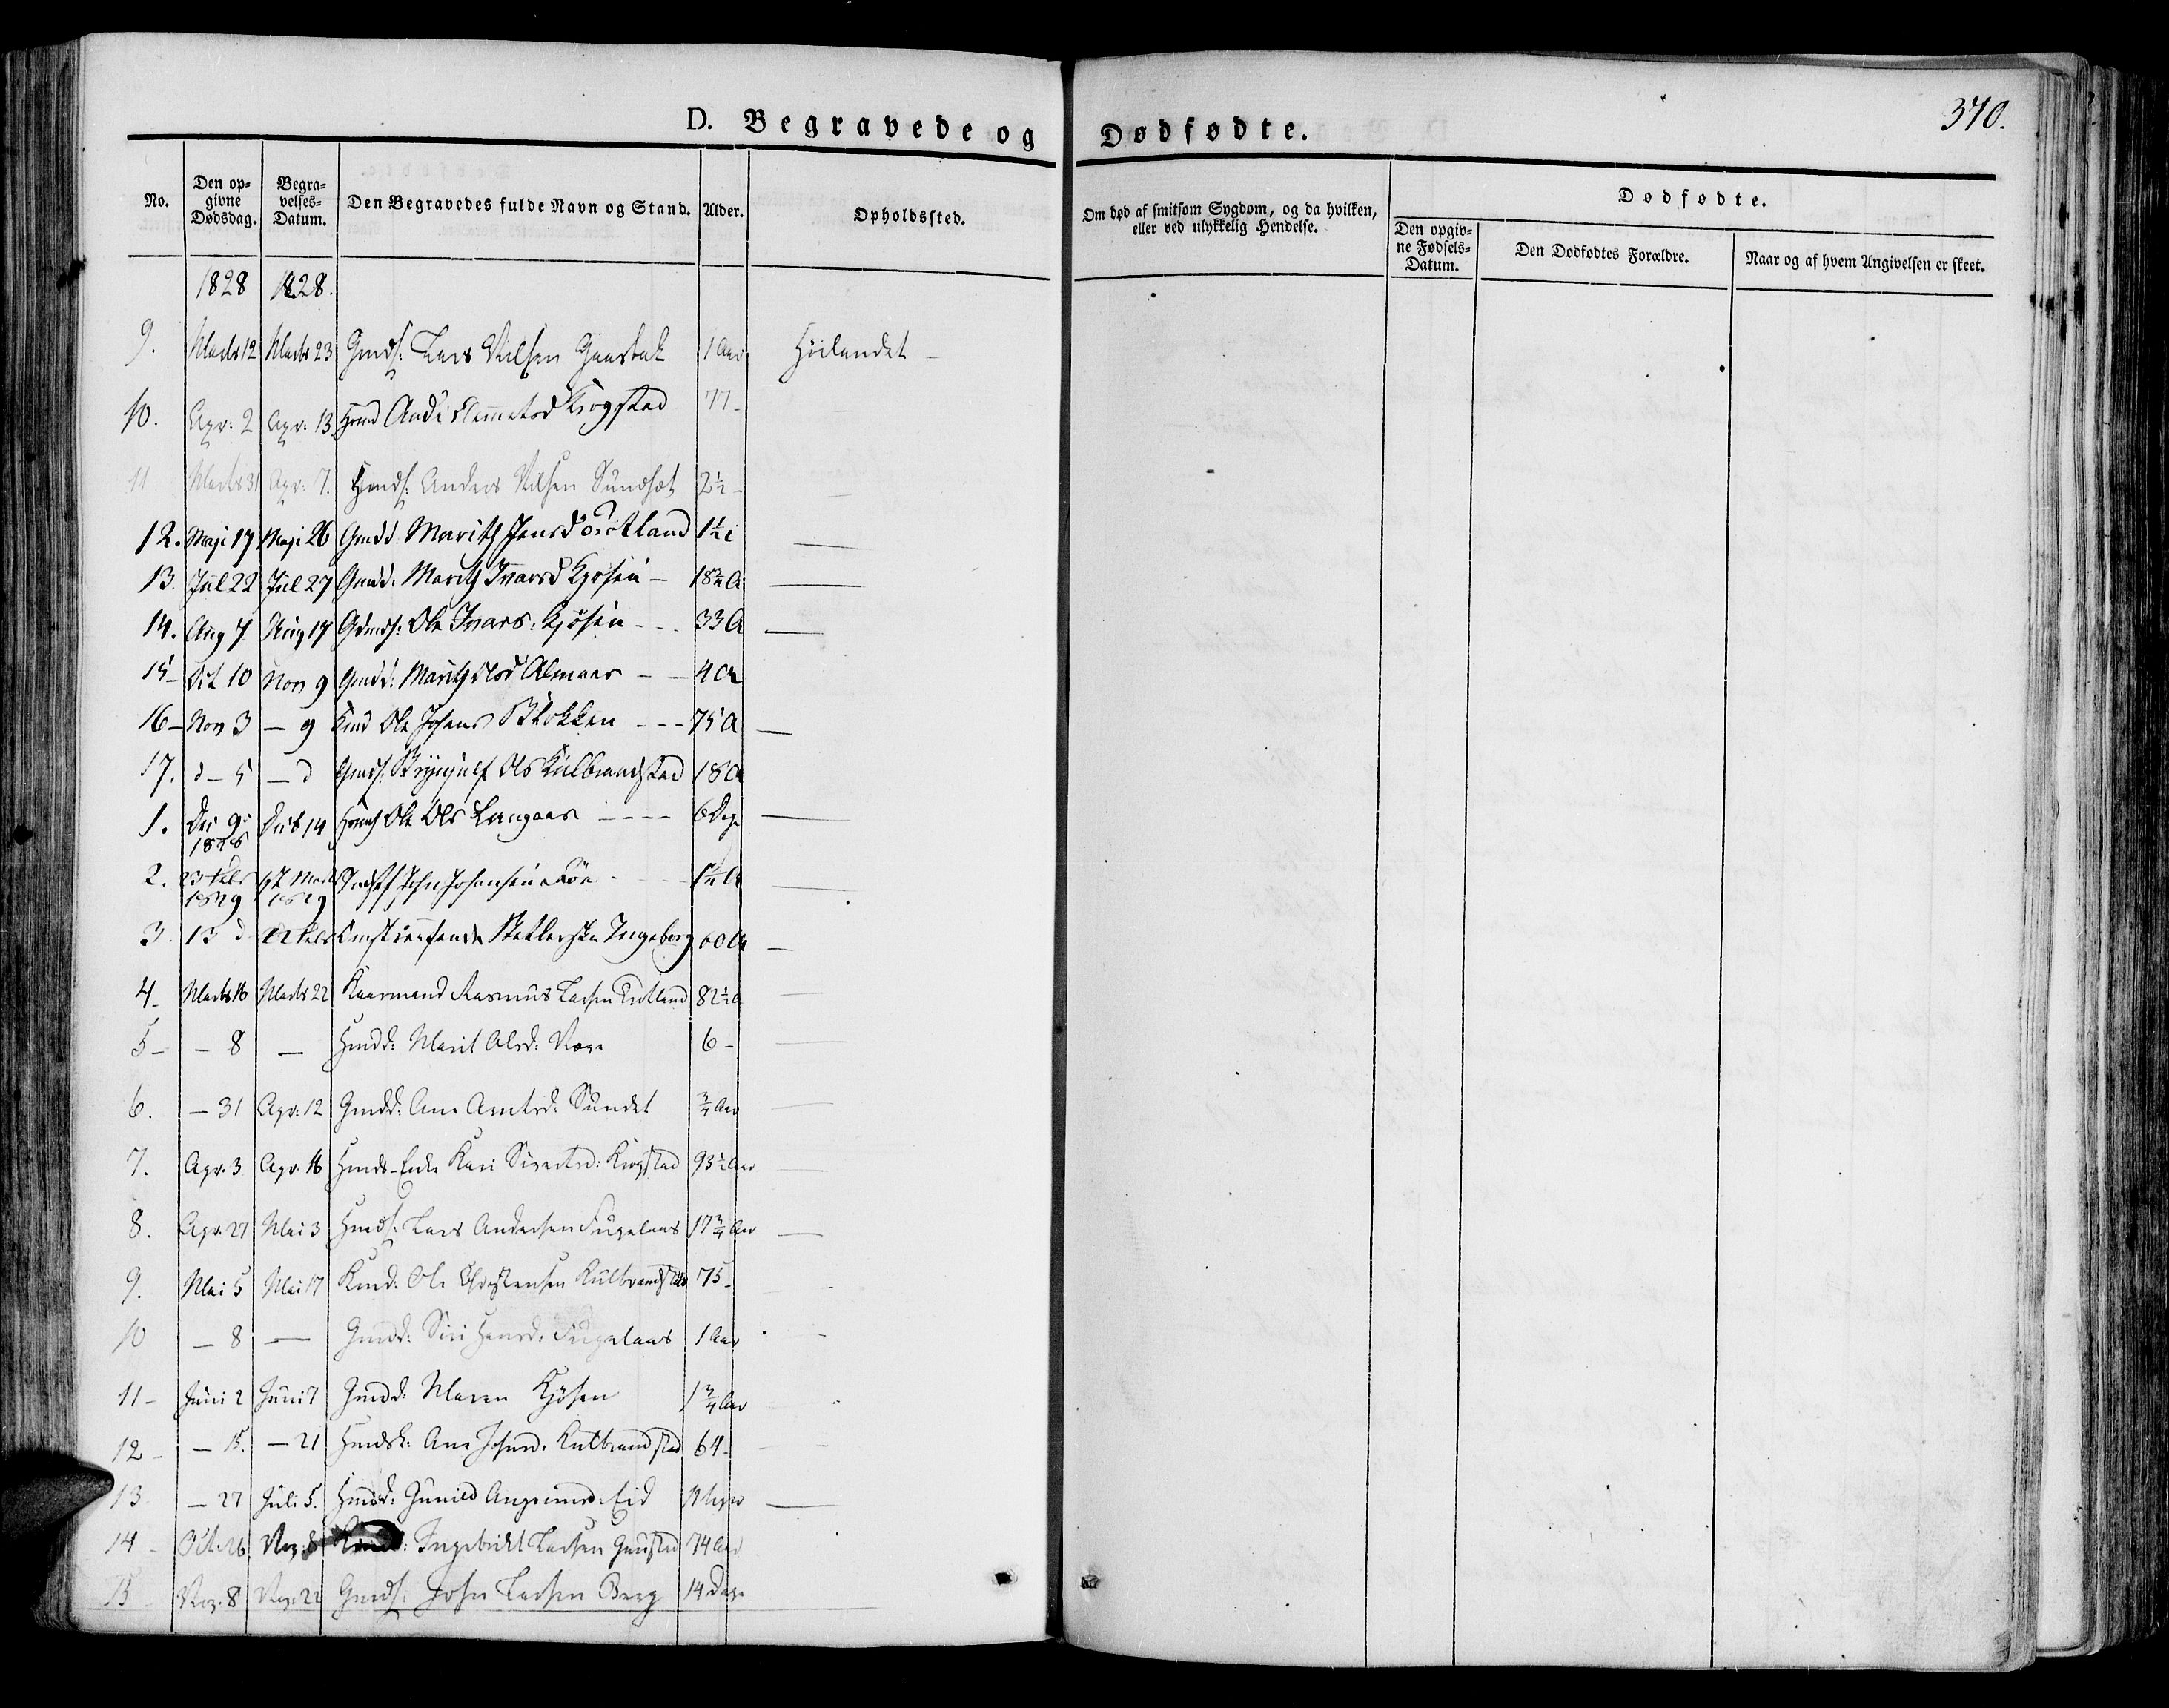 370.
D. Begravede og Dødfødte.
No. Den opgivne Dødsdag. Begravelses-Datum. Den Begravedes fulde Navn og Stand. Alder. Opholdssted. Om død af smitsom Sygdom, og da hvilken, eller ved ulykkelig Hendelse. Dødfødte.
Den opgivne Fødsels-Datum. Den Dødfødtes Forældre. Naar og af hvem Angivelsen er skeet.
1828 1828.
9. Marts 12 Marts 23 Gmds: Lars Nilsen 1 Aar Høilandet
10. Apr: 2 Apr: 13 Krogstad 77-
11 Marts 31 Apr: 7. Hmds: Anders Nilsen Sundset 2½-
12. Maji 17 Maji 26 Gmdd: Marith Jensd 1½
13. Jul 22 Jul 27 Gmdd: Marith Ivarsd Kjøsen - 18¾ A
14. Aug 7. Aug 17 Gdmds: Ole Ivars: Kjøsen - - 33 A
15- Oct 10 Nov 9 Gmdd: Marith Olsd Almaas - - 4 A
16- Nov 3 - 9 Ole Johans Blokken - - - 75 A
17. d - 5 - d Gmds: Bryngulf Ols Kulbrandstad 18 A
1. Dec 9: 1828 Decb 14 Ole Ols Langaas - - - - 6 Dage
2. 23 Febr 1829 1829 John Johansen
3. 13 d 22 Febr Ingeborg 60 A
4- Marts 16 Marts 22 Kaarmand Rasmus Larsen 82½ A
5- - 8 - Hmdd: Marit Olsd: 6 -
6. - 31 Apr: 12 Gmdd: Ane Arntsd: Sundet ¾ Aar
7. Apr. 3 Apr. 16 Hmds-Enke Kari Sivertsd: Krogstad 93½ Aar
8. Apr. 27 Mai 3 Hmds: Lars Andersen Fugelaas 17¾ Aar
9. Mai 5 Mai 17 Kmd: Ole Kulbrandstad 75-
10 - 8 - Gmdd: Siri Hansd: Fugelaas 1 Aar
11- Juni 2 Juni 7 Gmdd: Maren Kjøsen 1¾ Aar
12- - 15. - 21 Ane Johnsd: Kulbrandstad 64-
13 - 27 Juli 5. Hmdd: Gunild Eid
14 - Oct: 26 Nov: 8 Ingebrigt Larsen 74 Aar
15- Nov. 8 Nov. 22 Gmds: John Larsen Berg 14 Dage